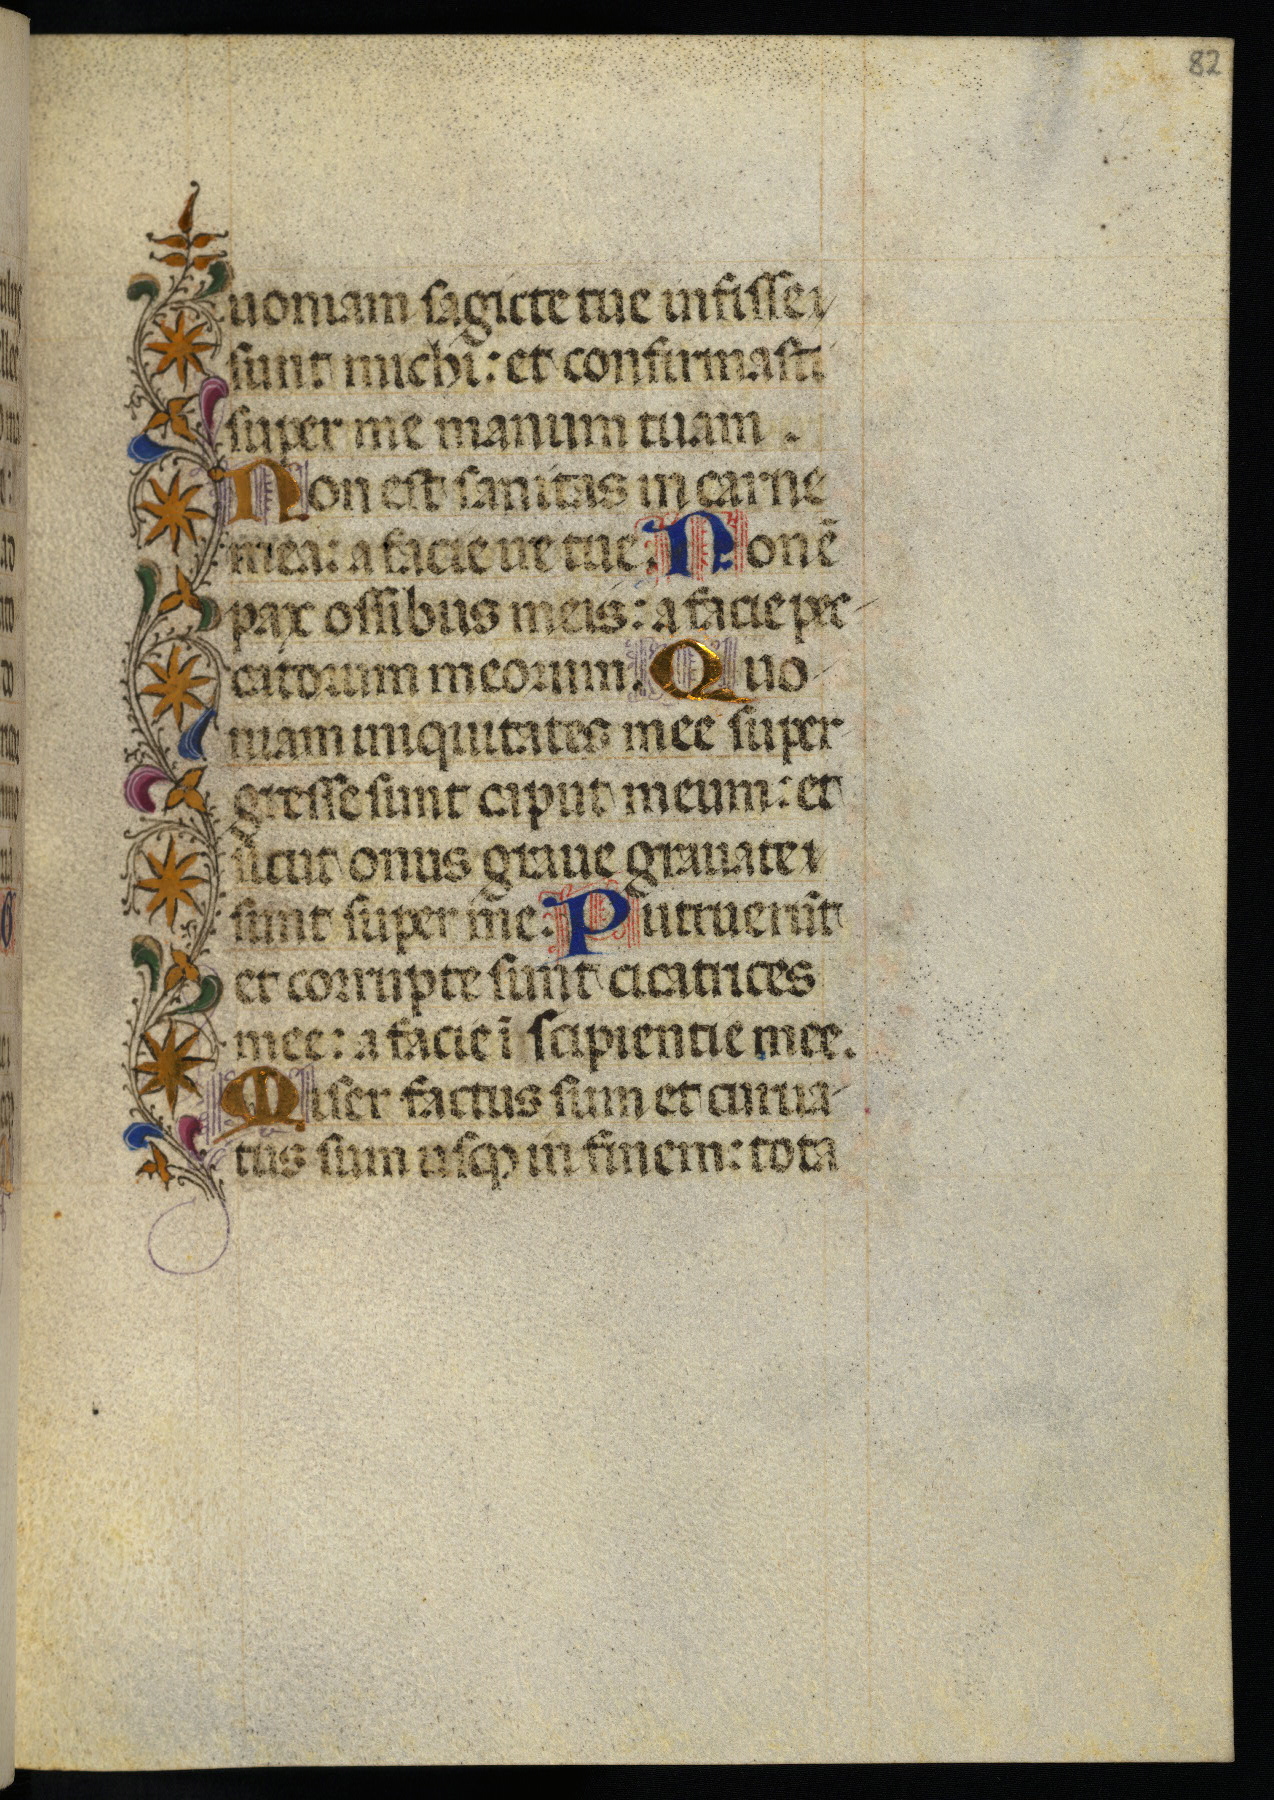 82
uoniam sagicte tue infixe
sunt michi: et confirmasti
super me manum tuam.
Non est sanitas in carne
mea: a facie ire tue. Non ē
pax ossibus meis: a facie pec
catorum meorum. Quo
niam iniquitates mee super
gresse sunt caput meum: et
sicut onus graue grauate
sunt super me. Putruerūt
et corrupte sunt cicatrices
mee: a facie ī scipientie mee.
Miser factus sum et curua
tus sum usqꝫ in finem: tota